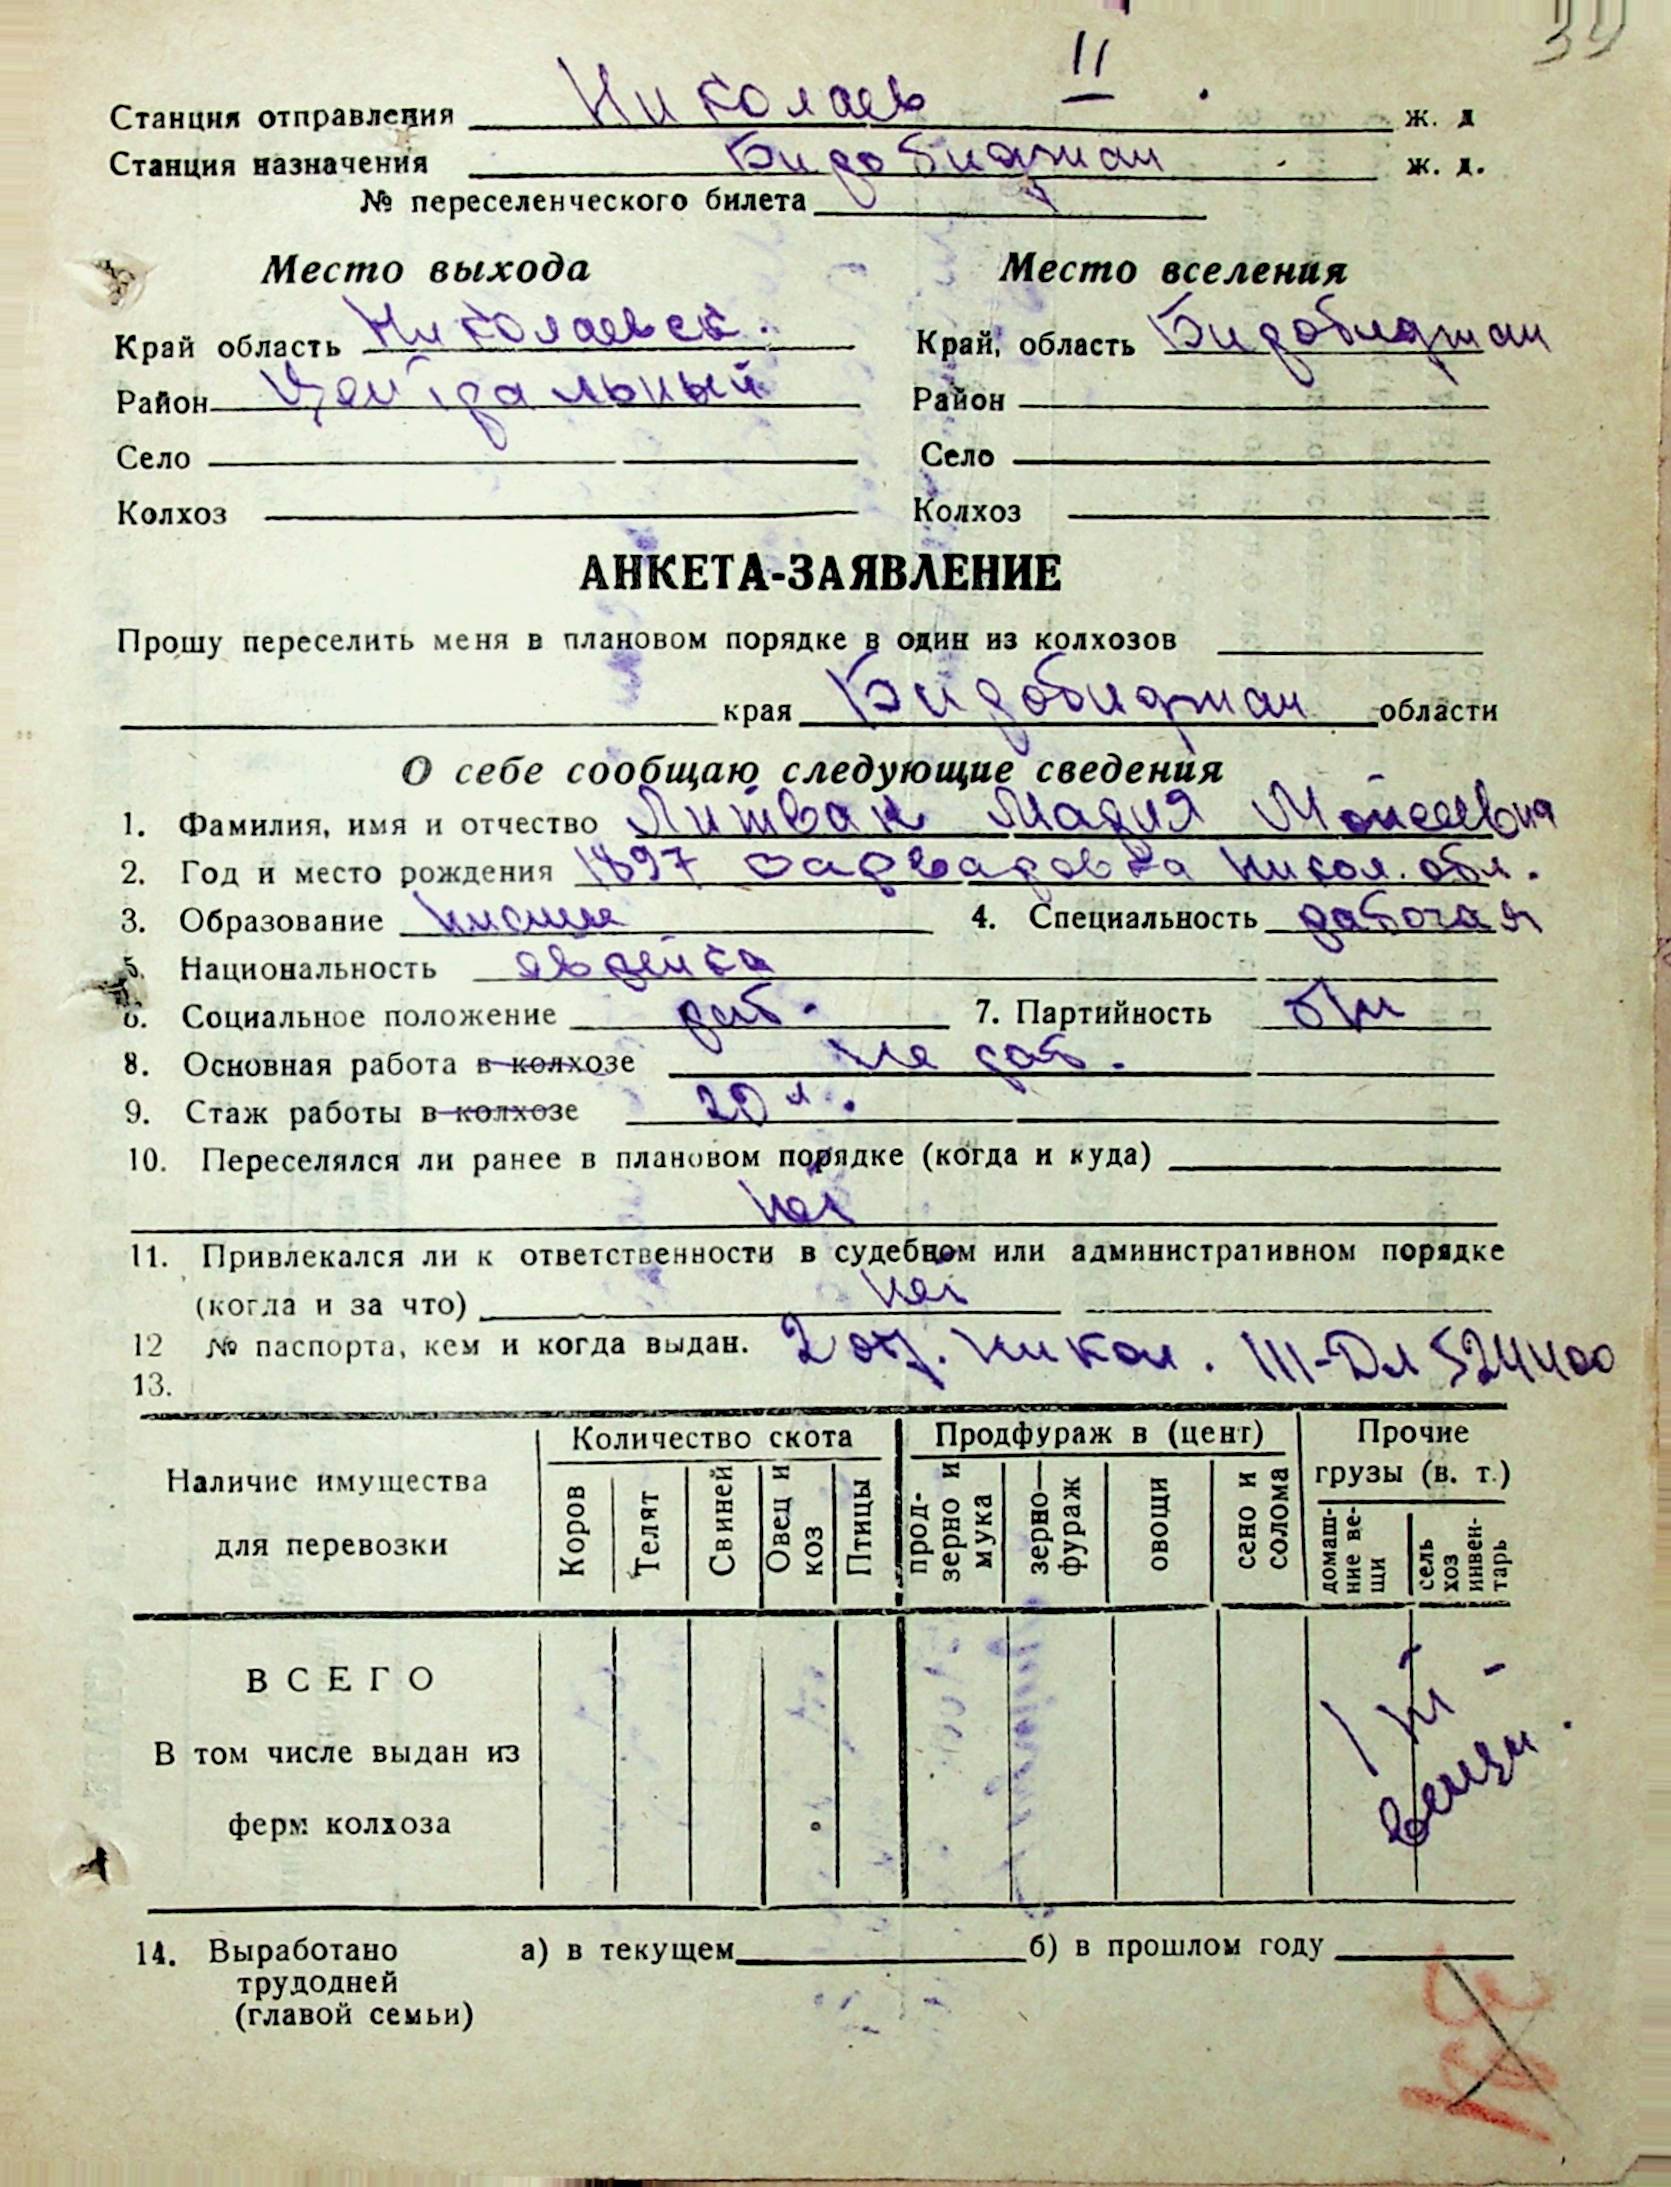 39
Николаев II
Станция отправления ж. д
Станция назначения Биробиджан ж. д.
№ переселенческого билета
Место выхода Место вселения
Край область Николаевск. Край, область Биробиджан
Район Центральный Район
Село Село
Колхоз Колхоз
АНКЕТА-ЗАЯВЛЕНИЕ
Прошу переселить меня в плановом порядке в один из колхозов
края Биробиджан области
О себе сообщаю следующие сведения
1. Фамилия, имя и отчество Литвак Мария Моисеевна
2. Год и место рождения 1897 Никол. обл.
3. Образование низшее 4. Специальность рабочая
5. Национальность еврейка
6. Социальное положение раб. 7. Партийность б/п
8. Основная работа в колхозе не раб.
9. Стаж работы в колхозе 20 л.
10. Переселялся ли ранее в плановом порядке (когда и куда)
нет
11. Привлекался ли к ответственности в судебном или административном порядке
(когда и за что) нет
12 № паспорта, кем и когда выдан. 2 от. Никол. III-Дл 524400
13.
Наличие имущества для перевозки
Количество скота Продфураж в (цент) Прочие грузы (в. т.)
Коров Телят Свиней Овец и коз Птицы прод-зерно и мука зерно-фураж овощи сено и солома домаш-ние ве-щи сель хоз инвен-тарь
ВСЕГО
1 т -
вещи.
В том числе выдан из
ферм колхоза
14. Выработано а) в текущем б) в прошлом году
трудодней
(главой семьи)